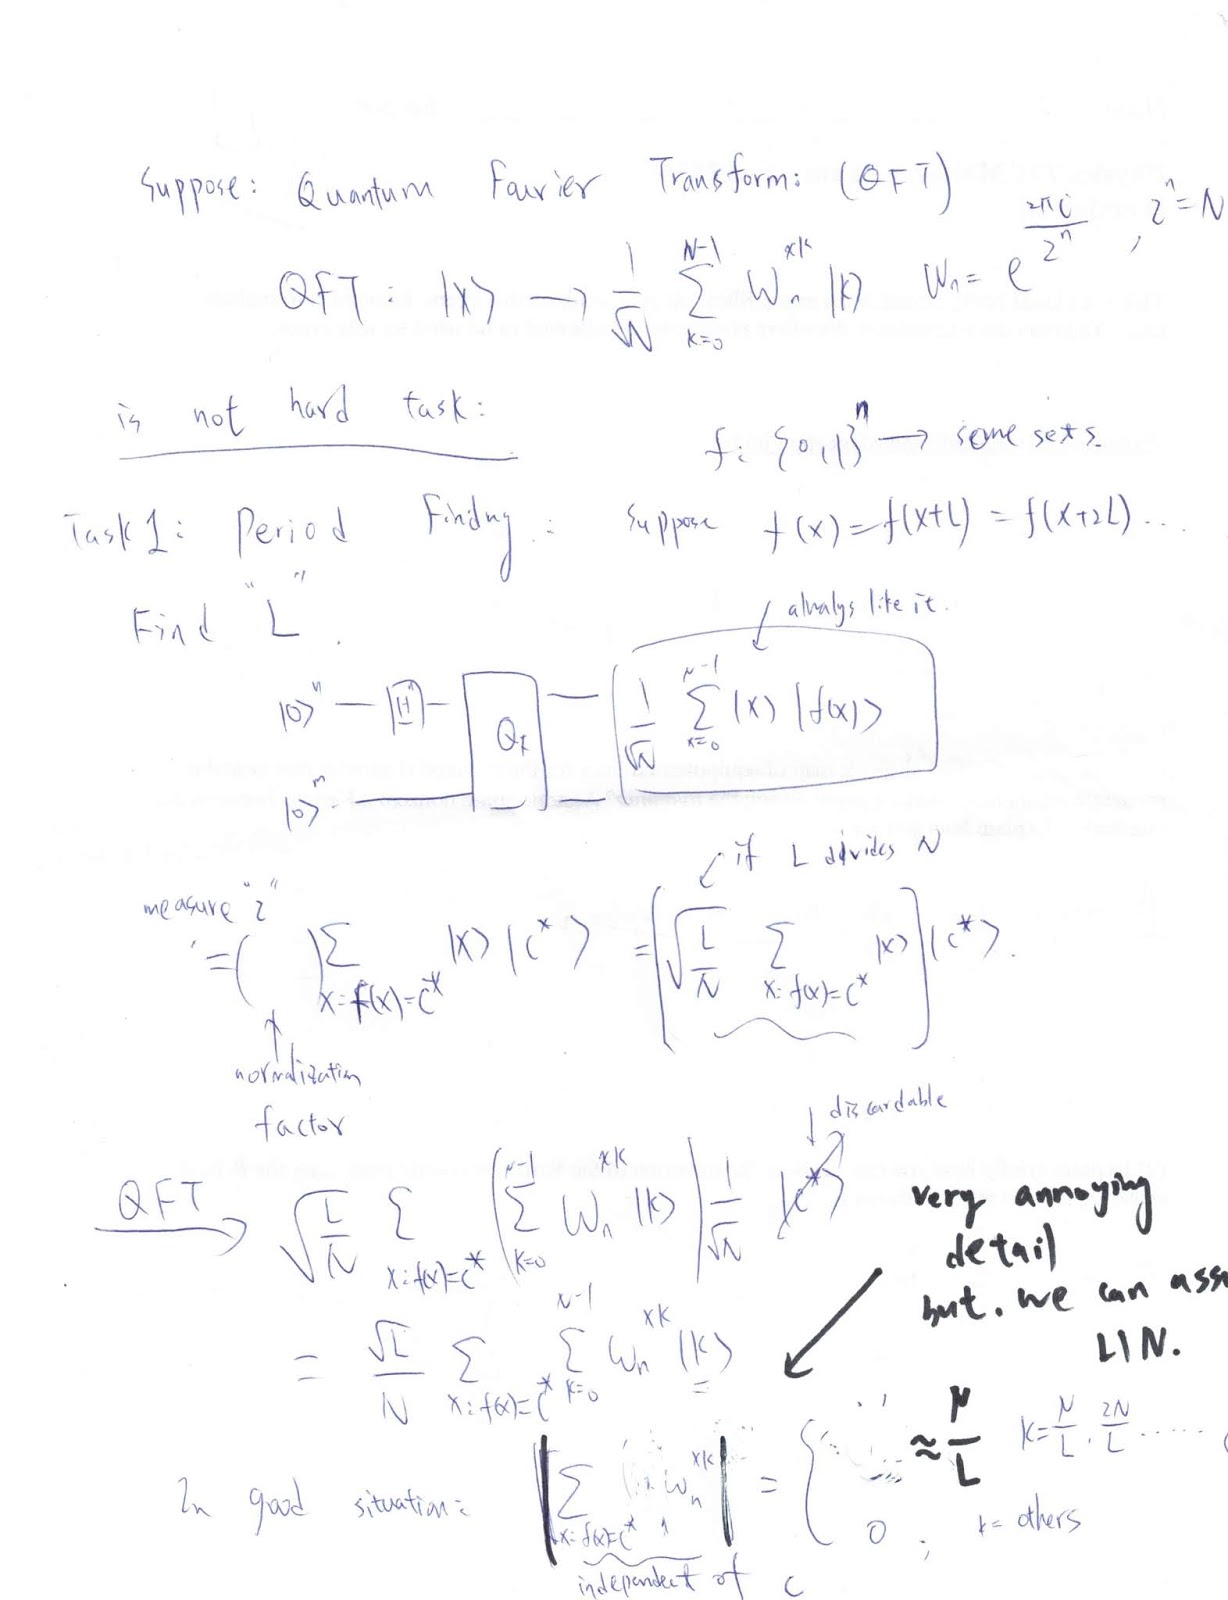 Suppose: Quantum Fourier Transform: (QFT)
QFT: |x> → 1/√N ∑_{k=0}^{N-1} W_n^{xk} |k> W_n = e^{2πi/2^n}, 2^n = N
is not hard task:
f: {0,1}^n → some sets.
Task 1: Period Finding: Suppose f(x) = f(x+L) = f(x+2L) ...
Find "L".
always like it.
|0>^n — H^n — Q_f — 1/√N ∑_{x=0}^{N-1} |x> |f(x)>
|0>^m
if L divides N
measure "2"
= ( ) ∑_{x: f(x)=c*} |x> |c*> = [√(L/N) ∑_{x: f(x)=c*} |x>] |c*>.
normalization
factor
discardable
QFT → √(L/N) ∑_{x: f(x)=c*} (∑_{k=0}^{N-1} W_n^{xk} |k>) 1/√N |c*>
very annoying
detail
but. we can ass
L|N.
= √L/N ∑_{x: f(x)=c*} ∑_{k=0}^{N-1} W_n^{xk} |k>
In good situation: |∑_{x: f(x)=c*} W_n^{xk}| = { ≈ N/L k = N/L, 2N/L ......
0 ; k = others
independent of c